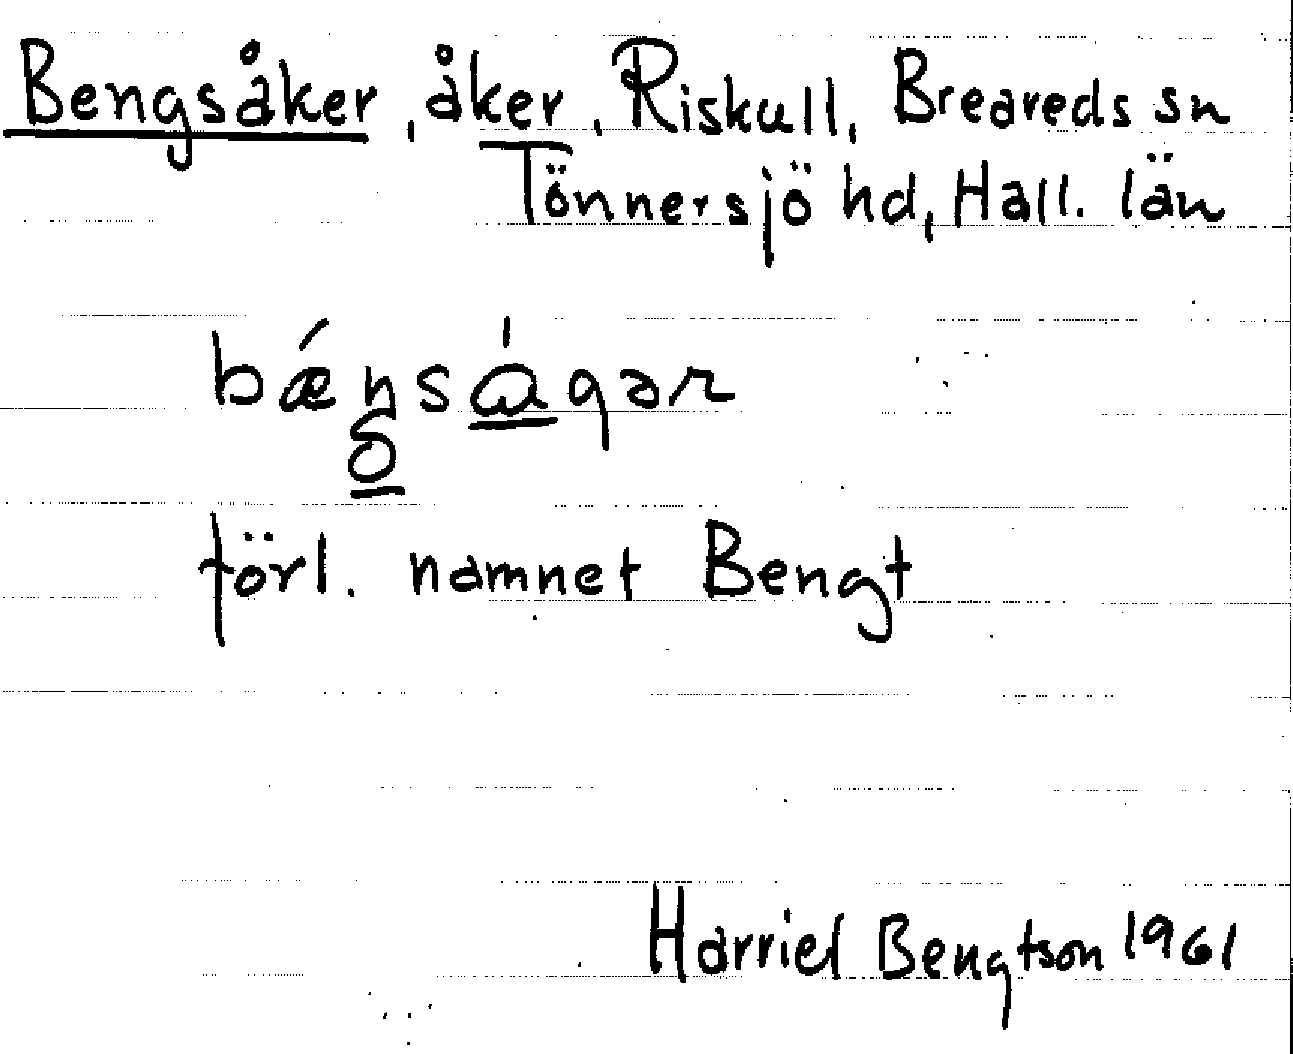 Bengsåker, åker, Riskull, Breareds sn
Tönnersjö hd, Hall. län
bǽŋsα̊́gər
förl. namnet Bengt
Harriel Bengtson 1961